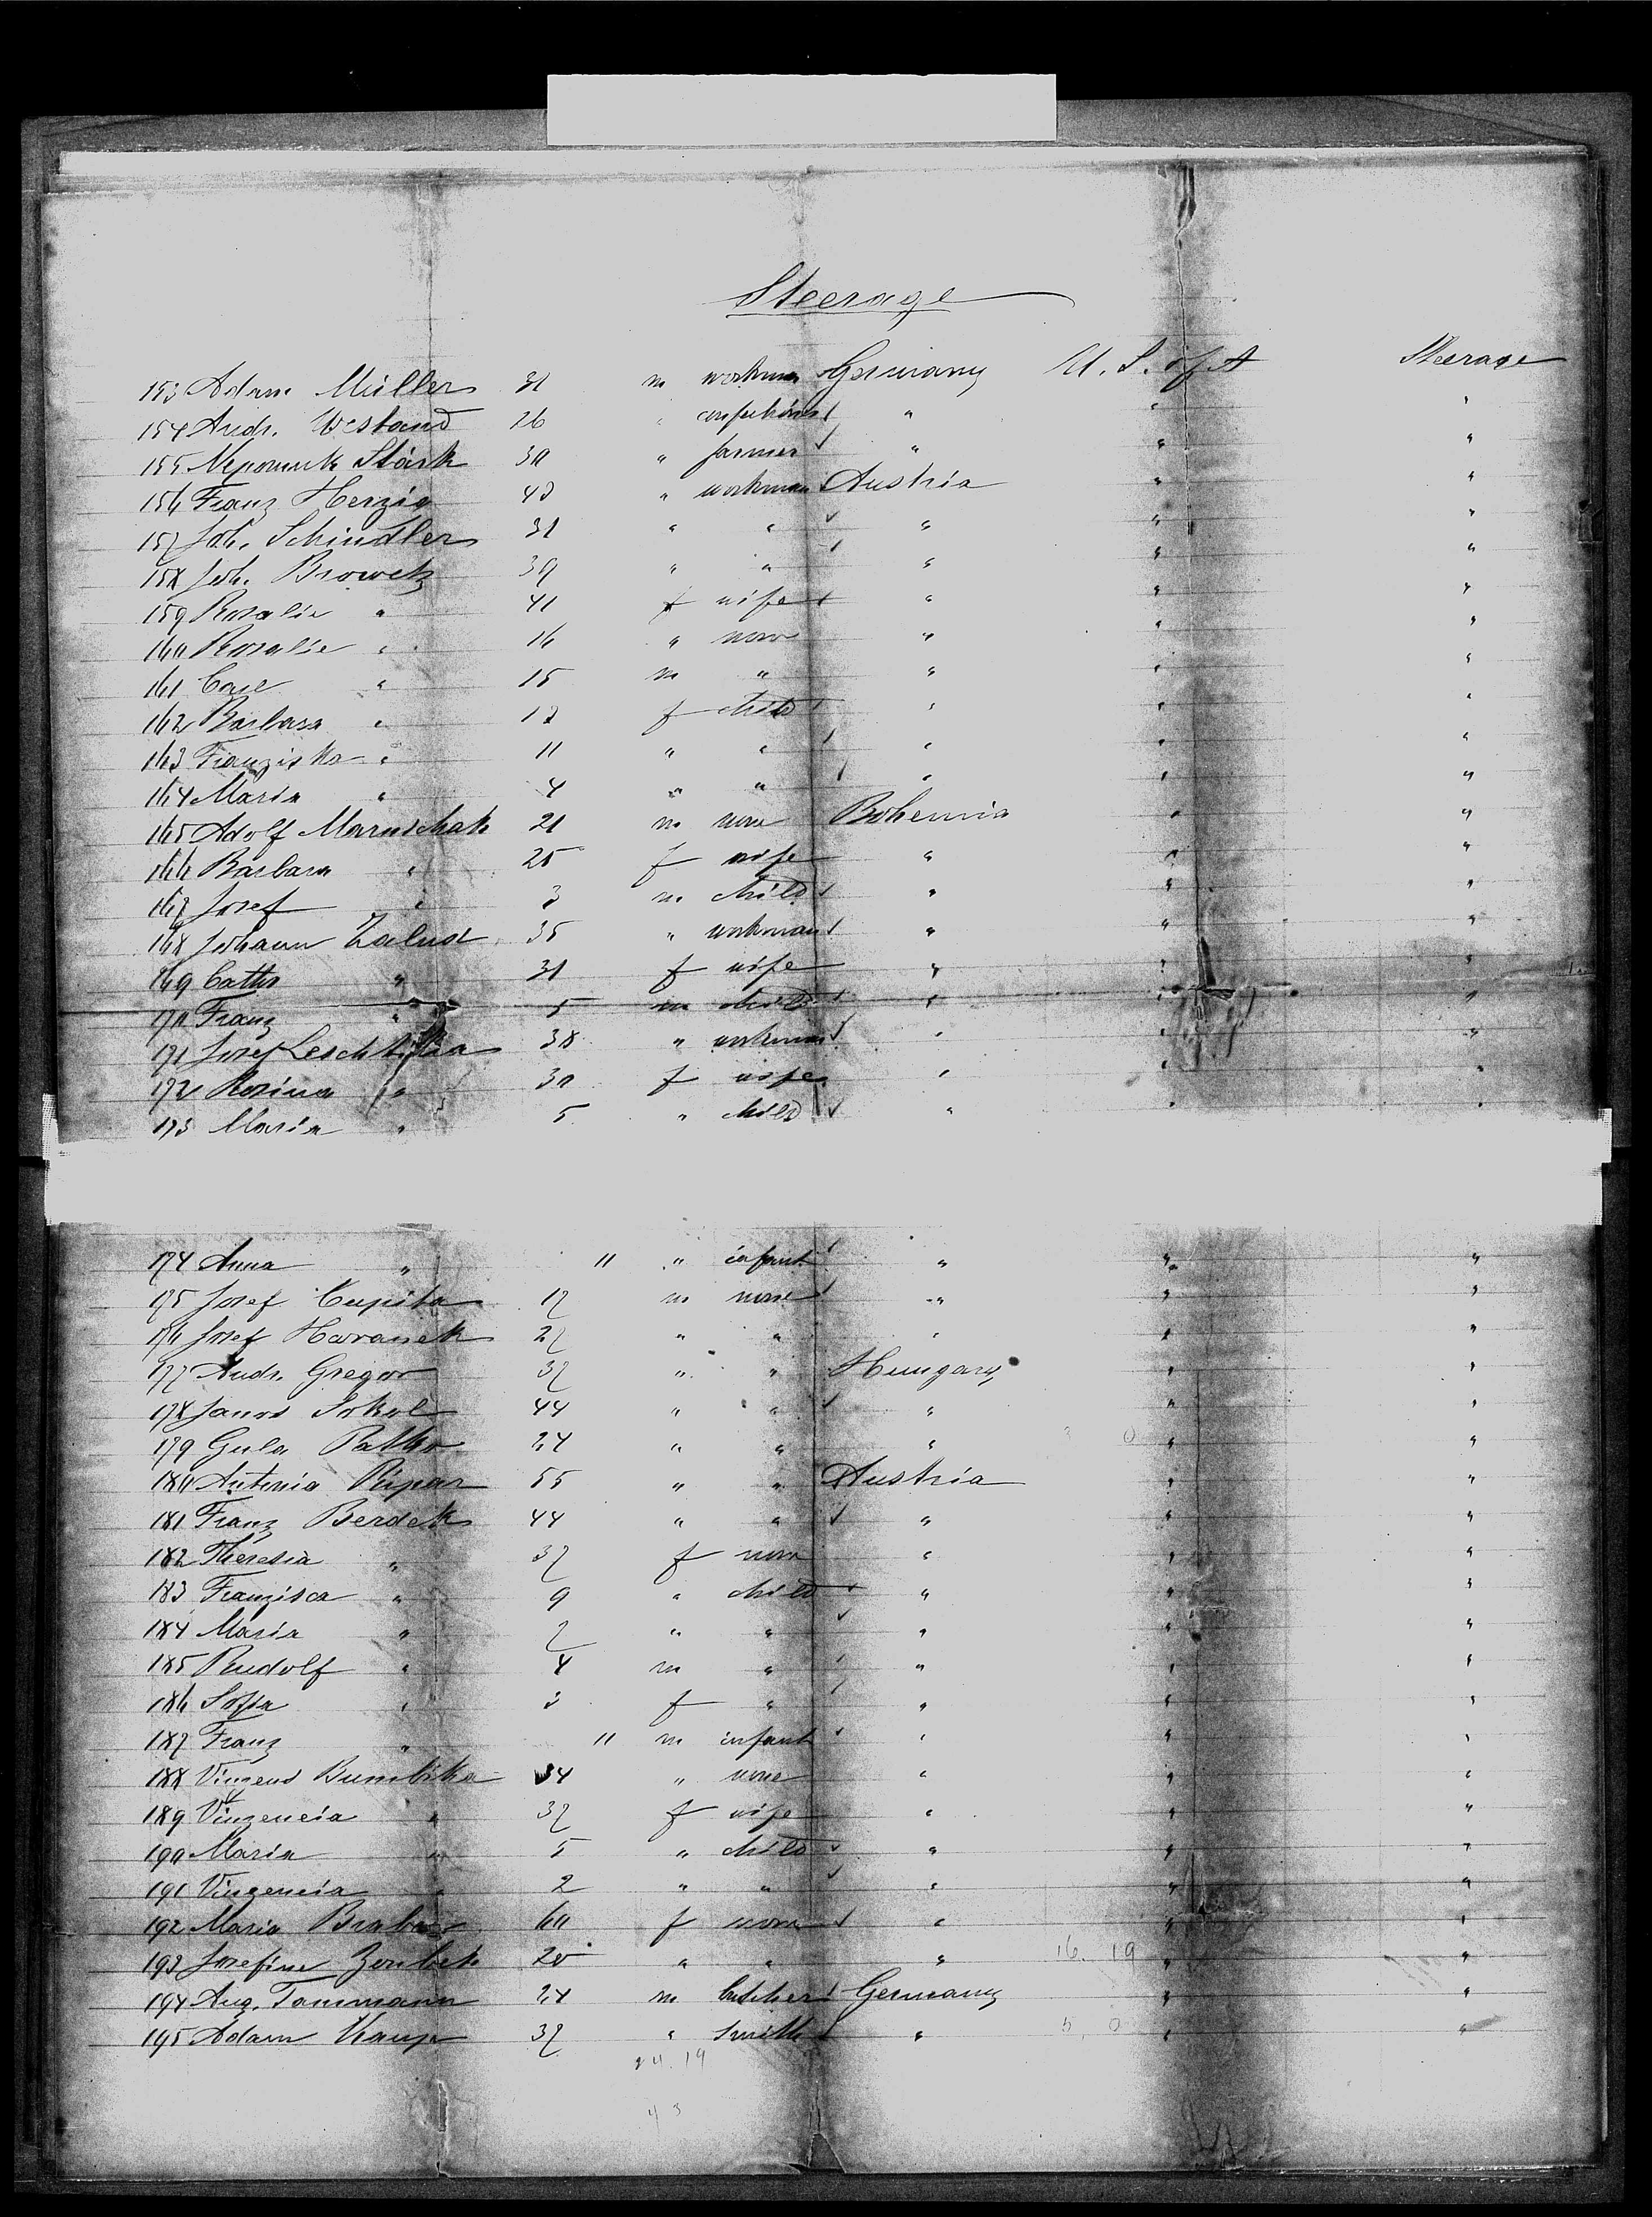 Steerage
153 Adam Müller 31 m workman Germany U. S. of A Steerage
154 Andr. Westand 26 " " "
155 Nepomuk Stärk 30 " farmer " " "
156 Franz Herzig 43 " workman Austria " "
157 Joh. Schindler 31 " " " " "
158 Joh. Browetz 39 " " " " "
159 Rosalie " 41 f wife " " "
160 Rosalie " 16 " none " " "
161 Carl " 15 m " " " "
162 Barbara " 13 f child " " "
163 Franziska " 11 " " " " "
164 Maria " 4 " " " " "
165 Adolf Maruschak 21 m none Bohemia " "
166 Barbara " 25 f wife " " "
167 Josef " 3 m child " " "
168 Johann Zalud 35 " workman " " "
169 Cath. " 31 f wife " " "
170 Franz " 5 m child " " "
171 Josef 38 " workman " " "
172 Rosina " 30 f wife " " "
173 Maria " 5 " child " " "
174 Anna " 11 " infant " " "
175 Josef Cupita 17 m none " " "
176 Josef Havranek 27 " " " " "
177 Andr. Gregor 37 " " Hungary " "
178 Janos Sokol 44 " " " " "
179 Gula Patko 24 " " " " "
180 Antonia Pipar 55 " " Austria " "
181 Franz Berdek 44 " " " " "
182 Theresia " 37 f none " " "
183 Franzisca " 9 " child " " "
184 Maria " 7 " " " " "
185 Rudolf " 4 m " " " "
186 Sofia " 3 f " " " "
187 Franz " 11 m infant " " "
188 Vinzens Bumbika 34 " none " " "
189 Vinzencia " 37 f wife " " "
190 Maria " 5 " child " " "
191 Vinzencia " 2 " " " " "
192 Maria 60 f none " " "
193 Josefine 20 " " " 16. 19 " "
194 Aug. Tammann 24 m butcher Germany " "
195 Adam 37 " smith " 5 0 " "
24. 19
43